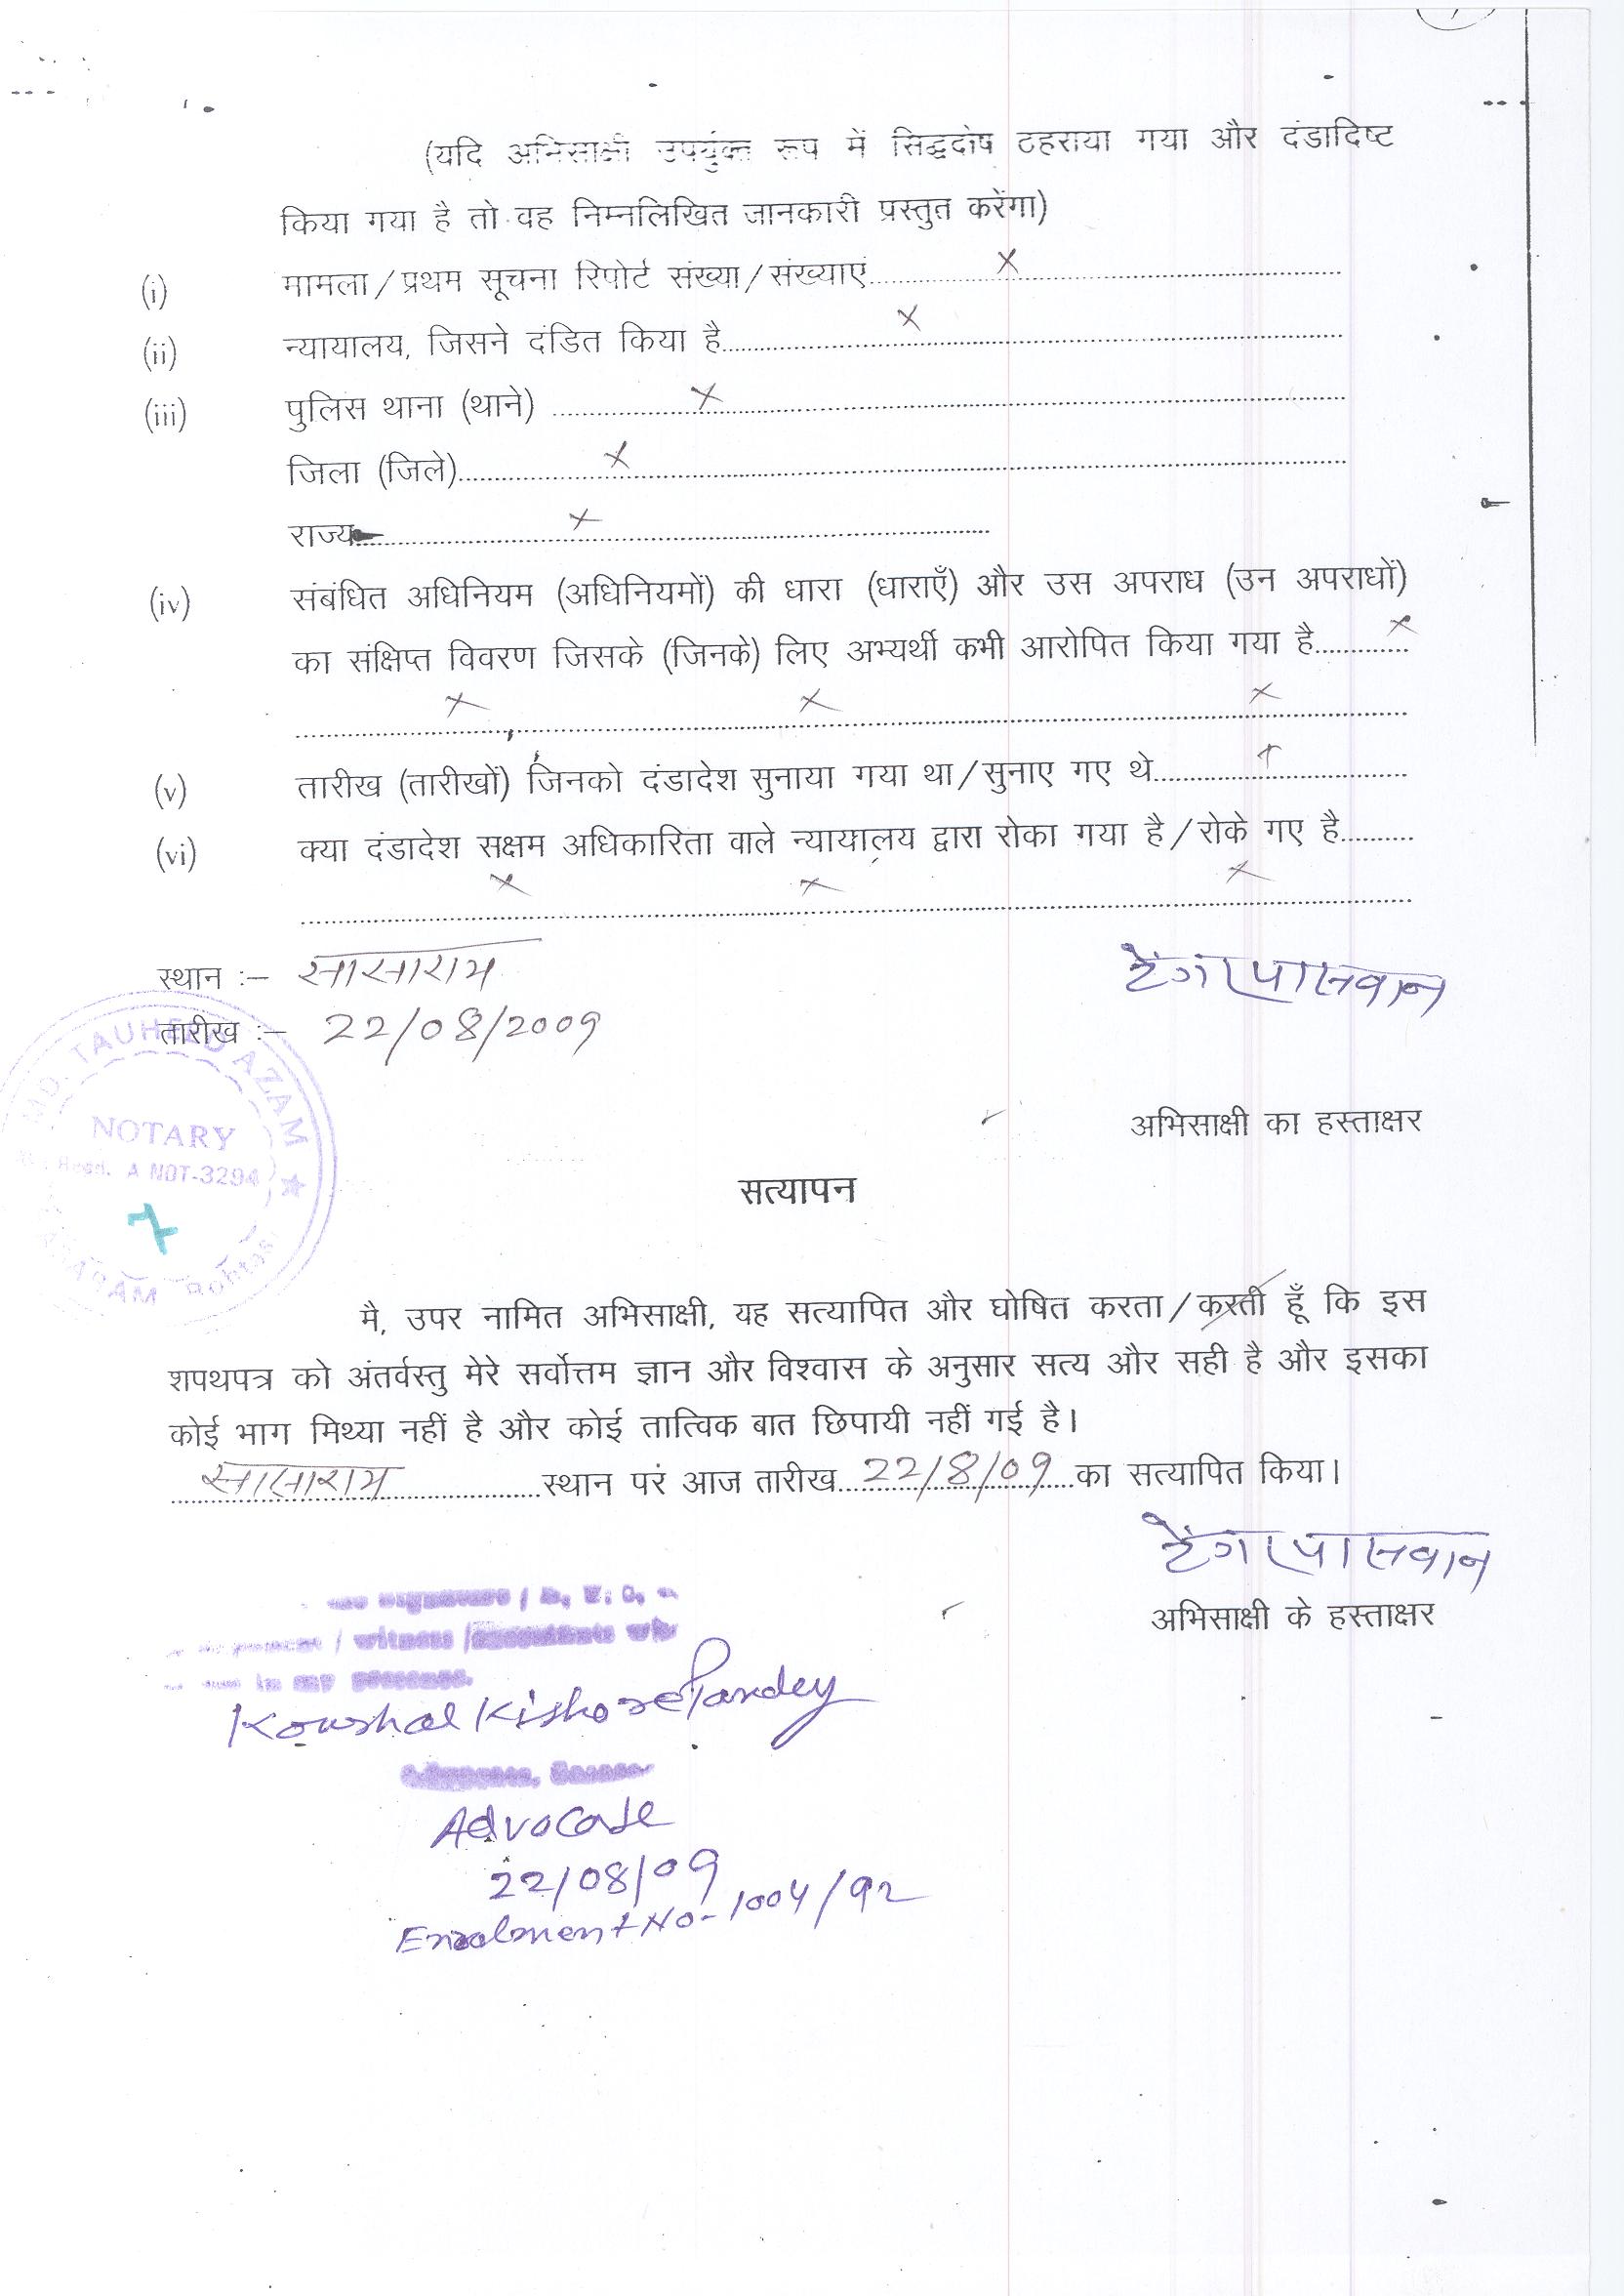 (यदि अभिसाक्षी उपर्युक्त रूप में सिद्धदोष ठहराया गया और दंडादिष्ट
किया गया है तो वह निम्नलिखित जानकारी प्रस्तुत करेंगा)
(i) मामला/प्रथम सूचना रिपोर्ट संख्या/संख्याएं.......... X ..........
(ii) न्यायालय, जिसने दंडित किया है.......... X ..........
(iii) पुलिस थाना (थाने) .......... X ..........
जिला (जिले).......... X ..........
राज्य.......... X ..........
(iv) संबंधित अधिनियम (अधिनियमों) की धारा (धाराएँ) और उस अपराध (उन अपराधों)
का संक्षिप्त विवरण जिसके (जिनके) लिए अभ्यर्थी कभी आरोपित किया गया है.......... X
X X X
(v) तारीख (तारीखों) जिनको दंडादेश सुनाया गया था/सुनाए गए थे.......... X
(vi) क्या दंडादेश सक्षम अधिकारिता वाले न्यायालय द्वारा रोका गया है/रोके गए है..........
X X X
स्थान :– सासाराम
तारीख :– 22/08/2009
पासवान
अभिसाक्षी का हस्ताक्षर
MD. TAUHEED AZAM
NOTARY
Regd. A NOT-3294
SASARAM Rohtas
सत्यापन
मै, उपर नामित अभिसाक्षी, यह सत्यापित और घोषित करता/करती हूँ कि इस
शपथपत्र को अंतर्वस्तु मेरे सर्वोत्तम ज्ञान और विश्वास के अनुसार सत्य और सही है और इसका
कोई भाग मिथ्या नहीं है और कोई तात्विक बात छिपायी नहीं गई है।
सासाराम..........स्थान परं आज तारीख..22/8/09..का सत्यापित किया।
पासवान
अभिसाक्षी के हस्ताक्षर
witness
in my presence.
Koushal Kishore Pandey
Advocate
22/08/09
Enrolment No- 1004/92